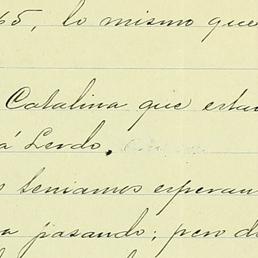 65, lo mismo que
Catalina que estu
á Lerdo.
s teniamos esperan
a pasando; pero d